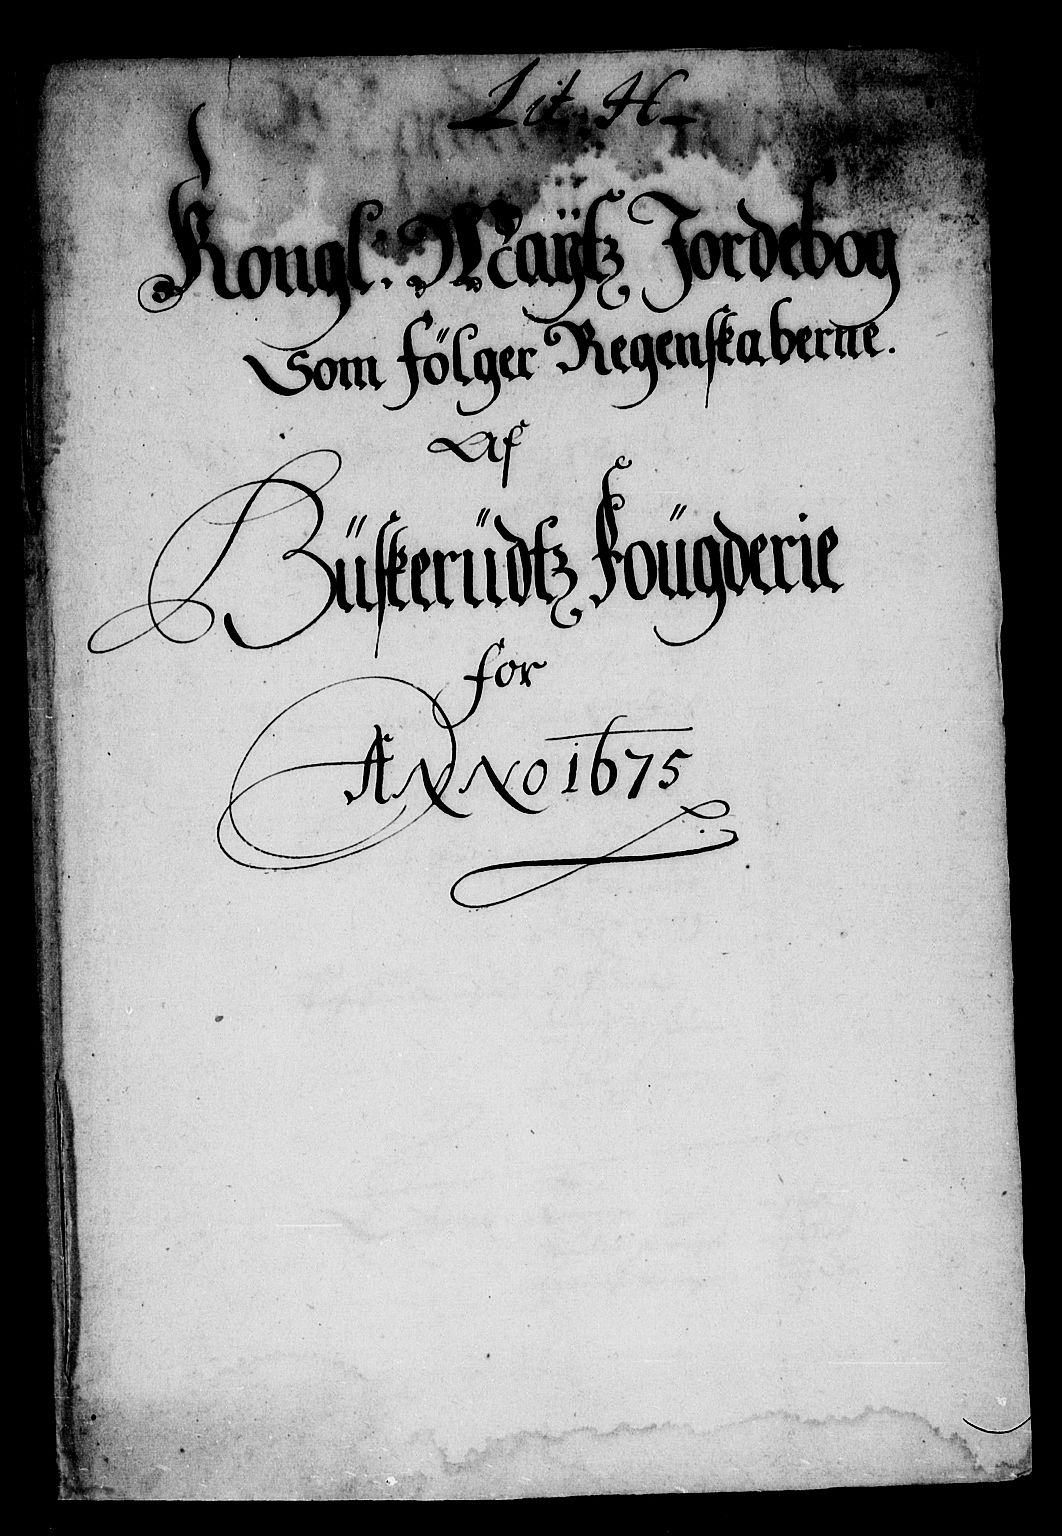 Lit. H
Kongl: Maÿtz Jordebog
Som fölger Regenskaberne.
Af
Büskerüdtz Foügderie
for
Anno 1675